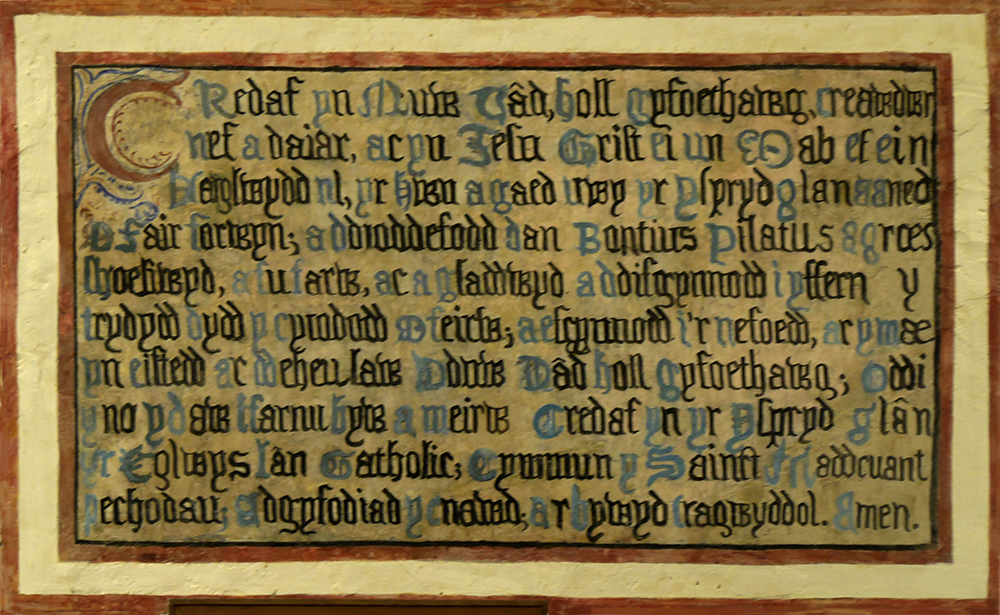 CRedaf yn Nuw Tâd, holl gyfoethawg, creawdwr
nef a daiar, ac yn Jesu Grist ei un Mab ef ein
Harglwydd ni, yr hwn a gaed trwy yr Yspryd glan a aned
o Fair forwyn; a ddioddefodd dan Bontius Pilatus a groes
hoeliwyd, a fu farw, ac a gladdwyd a ddisgynnodd i yffern y
trydydd dydd y cyfododd o feirw; a esgynnodd i'r nefoedd, ar y mae
yn eistedd ar ddeheulaw Dduw Dâd holl gyfoethawg; Oddi
yno y daw i farnu byw a meirw Credaf yn yr Yspryd glân
yr Eglwys lân Gatholic; Cymmun y Sainct Maddeuant
pechodau; Adgyfodiad y cnawd; a r bywyd tragwyddol. Amen.